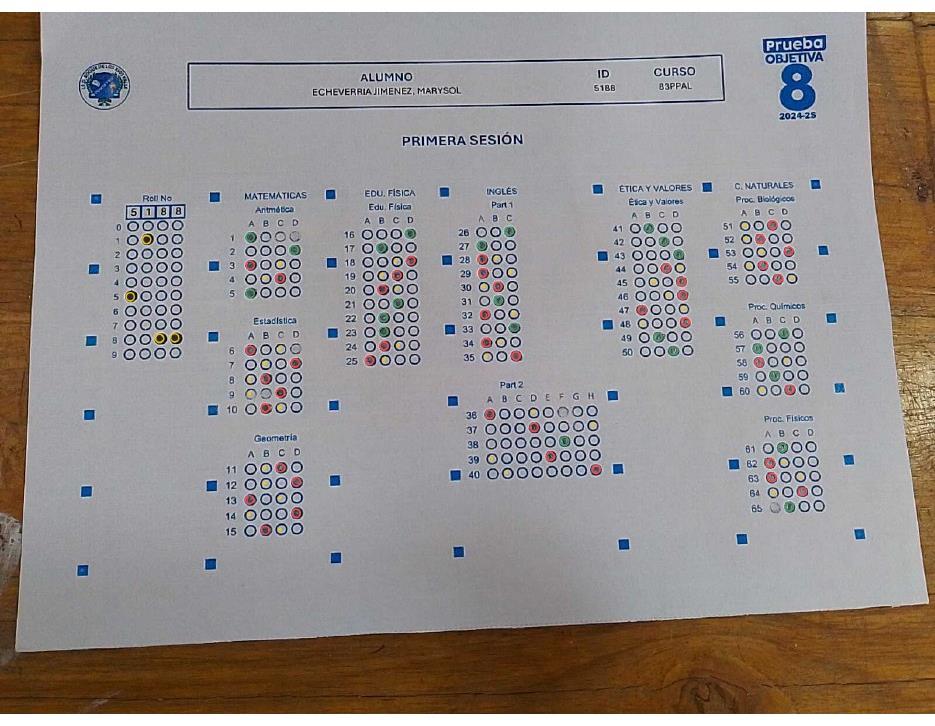 Prueba
OBJETIVA
8
2024-25
ALUMNO ID CURSO
ECHEVERRIA JIMENEZ, MARYSOL 5188 83PPAL
PRIMERA SESIÓN
Roll No
5 1 8 8
0
1
2
3
4
5
6
7
8
9
MATEMÁTICAS
Aritmética
A B C D
1
2
3
4
5
Estadística
A B C D
6
7
8
9
10
Geometría
A B C D
11
12
13
14
15
EDU. FÍSICA
Edu. Física
A B C D
16
17
18
19
20
21
22
23
24
25
INGLÉS
Part 1
A B C
26
27
28
29
30
31
32
33
34
35
Part 2
A B C D E F G H
36
37
38
39
40
ÉTICA Y VALORES
Ética y Valores
A B C D
41
42
43
44
45
46
47
48
49
50
C. NATURALES
Proc. Biológicos
A B C D
51
52
53
54
55
Proc. Químicos
A B C D
56
57
58
59
60
Proc. Físicos
A B C D
61
62
63
64
65